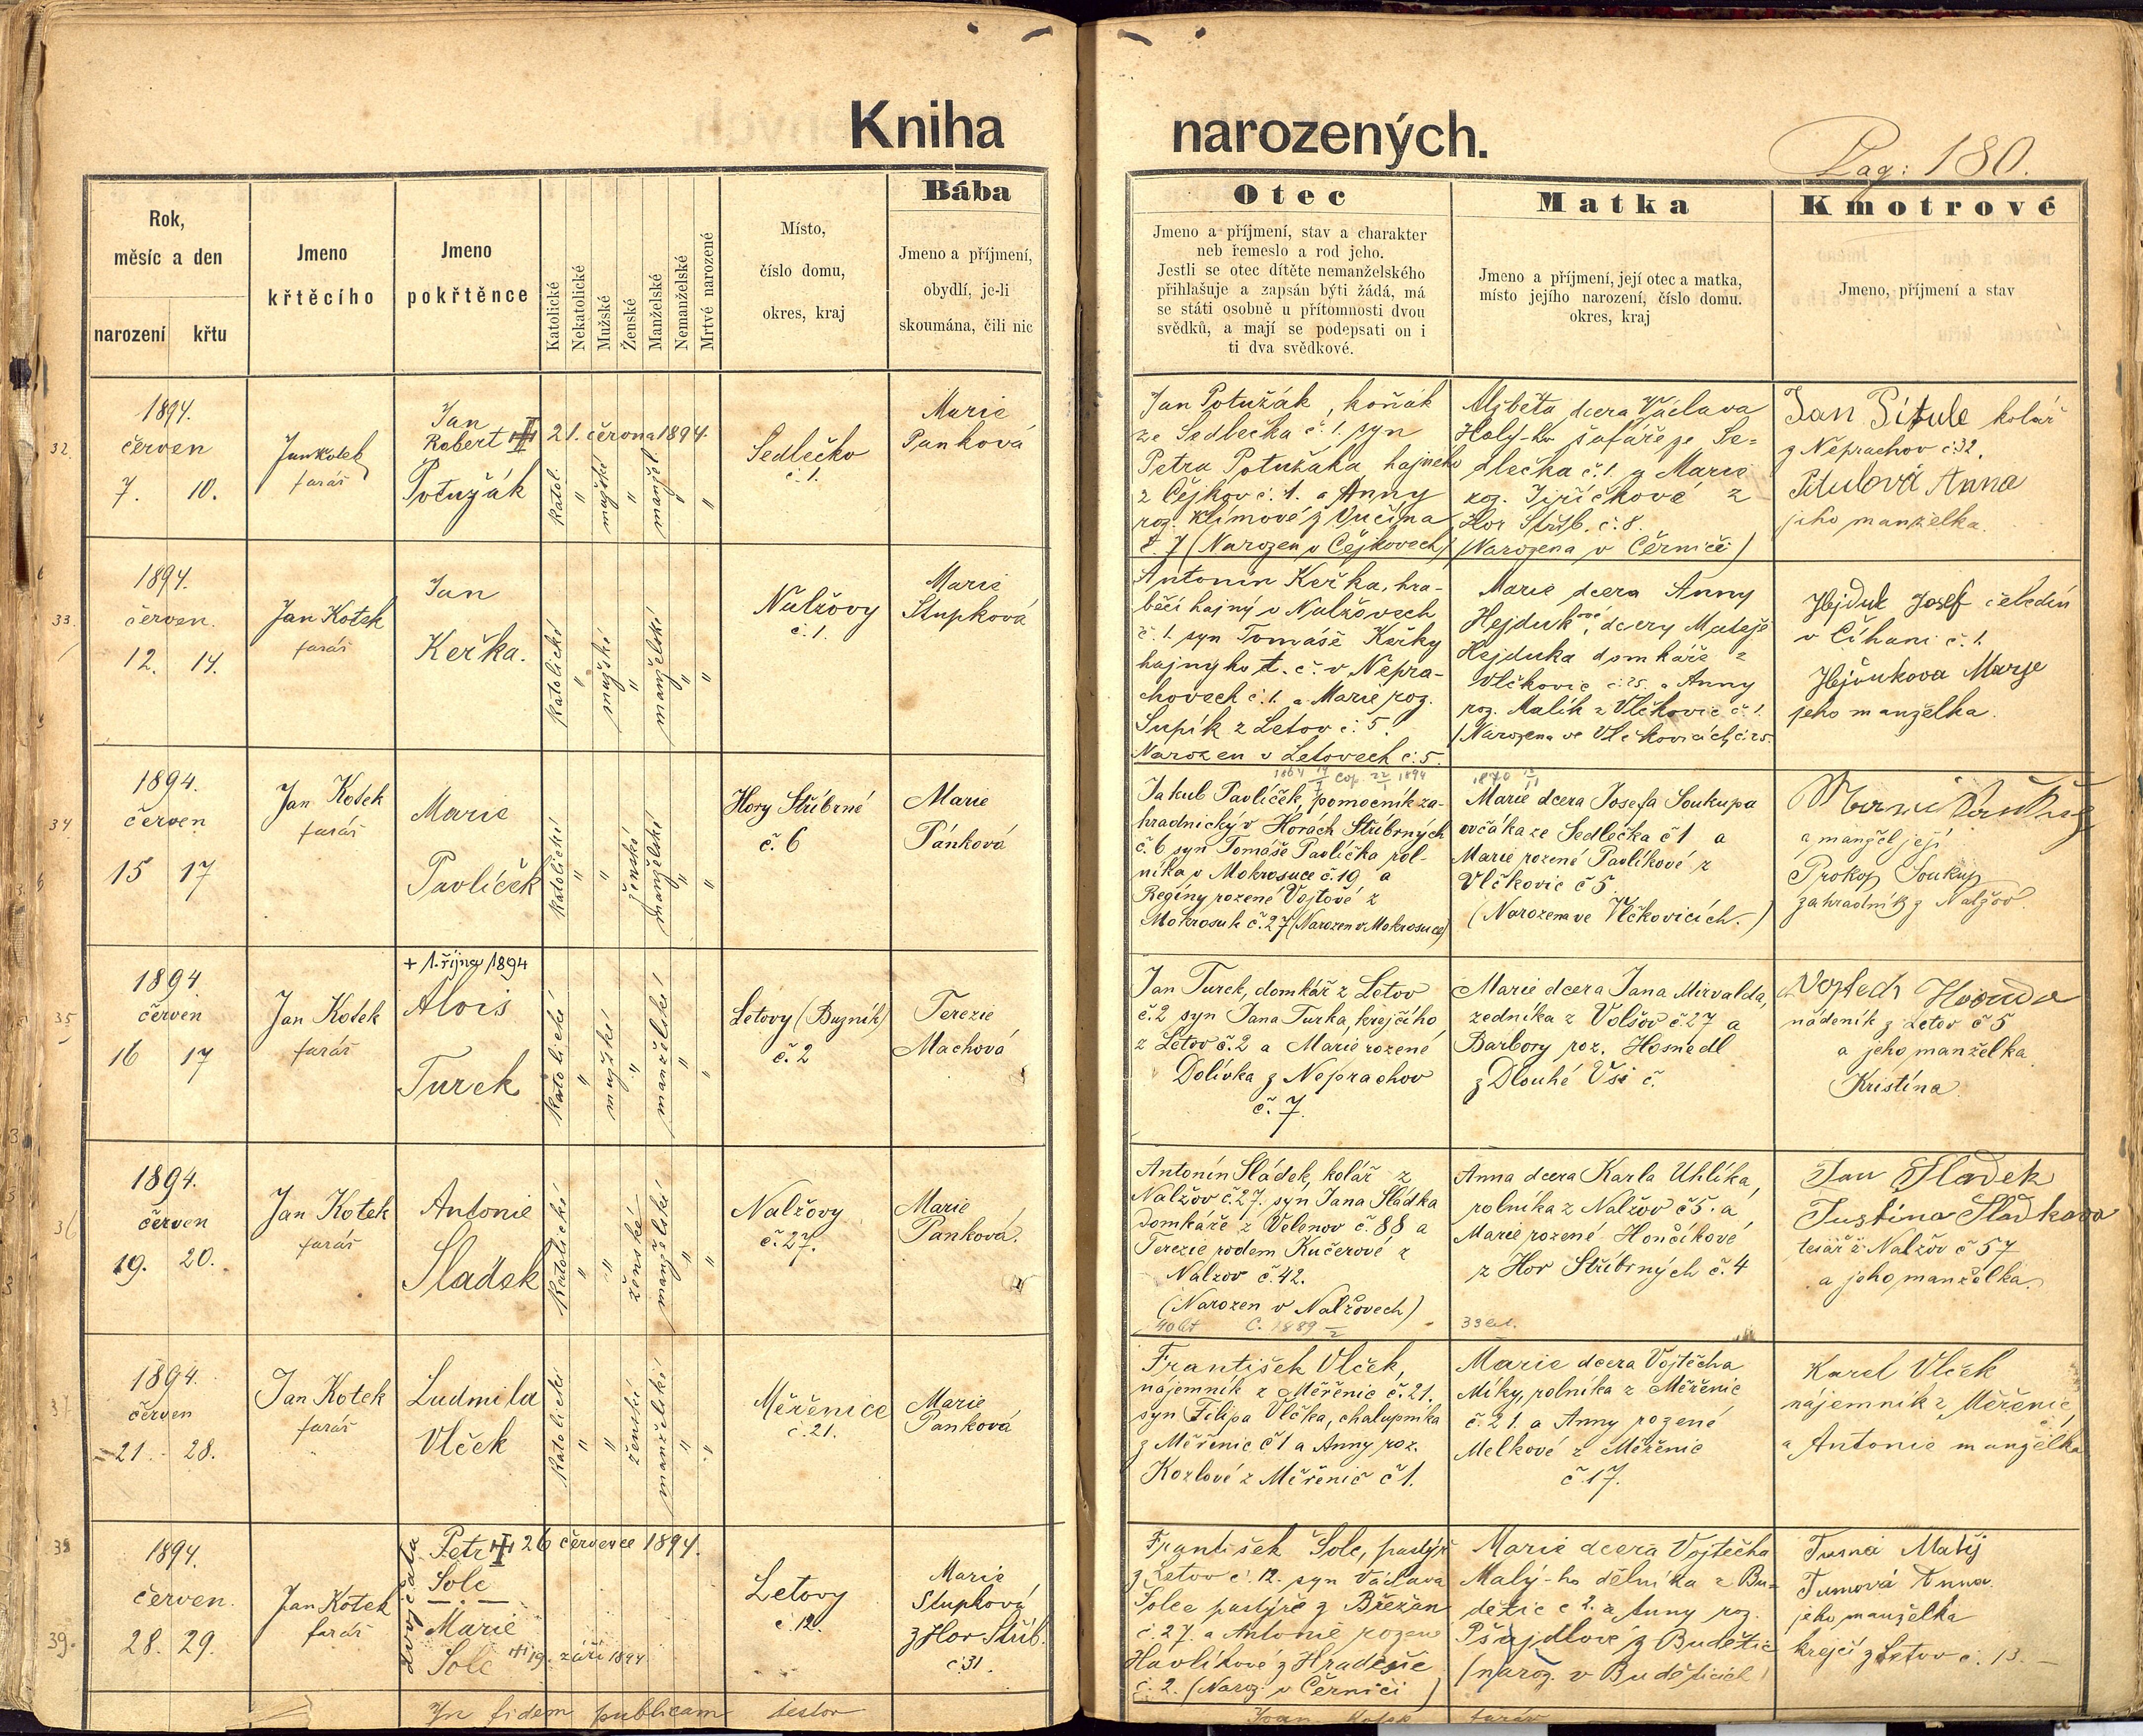 Kniha narozených.
Pag: 180.
Rok,
měsíc a den
narození křtu
Jmeno
křtěcího
Jmeno
pokřtěnce
Katolické
Nekatolické
Mužské
Ženské
Manželské
Nemanželské
Mrtvé narozené
Místo,
číslo domu,
okres, kraj
Bába
Jmeno a příjmení,
obydlí, je-li
skoumána, čili nic
Otec
Jmeno a příjmení, stav a charakter
neb řemeslo a rod jeho.
Jestli se otec dítěte nemanželského
přihlašuje a zapsán býti žádá, má
se státi osobně u přítomnosti dvou
svědků, a mají se podepsati on i
ti dva svědkové.
Matka
Jmeno a příjmení, její otec a matka,
místo jejího narození, číslo domu.
okres, kraj
Kmotrové
Jmeno, příjmení a stav
32.
1894.
červen
7. 10.
Jan Kotek
farář
Jan
Robert
21. června 1894.
Potužák
katol.
"
mužské
"
manžel.
"
"
Sedlečko
č. 1.
Marie
Panková
Jan Potužák, koňák
ze Sedlečka č. 1. syn
Petra Potužáka, hajného
z Čejkov č. 1. a Anny
roz. Klímové z Vučína
č. 7 (Narozen v Čejkovech)
Alžběta dcera Václava
Holý-ho šafáře ze Se-
dlečka č. 1. a Marie
roz. Jiříčkové z
Hor Stříb. č. 8.
(Narozena v Černiči)
Jan Pitule kolář
z Neprachov č. 32.
Pitulová Anna
jeho manželka.
33.
1894.
červen.
12. 14.
Jan Kotek
farář
Jan
Keřka.
katolické
"
mužské
"
manželské
"
"
Nalžovy
č. 1.
Marie
Stupková
Antonín Keřka, hra-
běcí hajný v Nalžovech
č. 1. syn Tomáše Keřky
hajnyho t. č. v Nepra-
chovech č. 1. a Marie roz.
Supík z Letov č. 5.
Narozen v Letovech č. 5.
Marie dcera Anny
Hejdukové, dcery Matěje
Hejduka domkáře z
Vlčkovic č. 25. a Anny
roz. Malík z Vlčkovic č. 1.
(Narozena ve Vlčkovicích č. 25.
Hejduk Josef čeledín
v Číhani č. 1.
Hejdukova Marje
jeho manželka.
34.
1894.
červen
15 17
Jan Kotek
farář
Marie
Pavlíček
katolické
"
"
ženské
manželské
"
"
Hory Stříbrné
č. 6
Marie
Pánková
Jakub Pavlíček, pomocník za-
hradnický v Horách Stříbrných
č. 6 syn Tomáše Pavlíčka rol-
níka v Mokrosuce č. 19 a
Regíny rozené Vojtové z
Mokrosuk č. 27 (Narozen v Mokrosuce)
Marie dcera Josefa Soukupa
ovčáka ze Sedlečka č 1 a
Marie rozené Pavlíkové z
Vlčkovic č 5.
(Narozena ve Vlčkovicích.)
Marie
a manžel její
Prokop Soukup
zahradník z Nalžov.
35
1894
červen
16 17
Jan Kotek
farář
+ 1. října 1894
Alois
Turek
katolické
"
mužské
"
manželské
"
"
Letovy (Buzník)
č. 2
Terezie
Machová
Jan Turek, domkář z Letov
č. 2 syn Jana Turka, krejčího
z Letov č. 2 a Marie rozené
Dolívka z Neprachov
č. 7.
Marie dcera Jana Mirvalda,
zedníka z Volšov č 27 a
Barbory roz. Hosnedl
z Dlouhé Vsi č.
Vojtěch
nádeník z Letov č 5
a jeho manželka
Kristína
36
1894.
červen
19. 20.
Jan Kotek
farář
Antonie
Sladek
katolické
"
"
ženské
manželské
"
"
Nalžovy
č. 27.
Marie
Panková.
Antonín Sládek, kolář z
Nalžov č. 27. syn Jana Sládka
domkáře z Velenov č. 88 a
Terezie rodem Kučerové z
Nalžov č. 42.
(Narozen v Nalžovech)
Anna dcera Karla Uhlíka,
rolníka z Nalžov č 5. a
Marie rozené Hončíkové
z Hor Stříbrných č. 4
33 let.
Jan Sladek
Justina Sladkova
tesář z Nalžov č 57
a jeho manželka
37
1894.
červen
21. 28.
Jan Kotek
farář
Ludmila
Vlček
katolické
"
"
ženské
manželské
"
"
Měřenice
č. 21.
Marie
Panková
František Vlček,
nájemník z Měřenic č. 21.
syn Filipa Vlčka, chalupníka
z Měřenic č 1 a Anny roz.
Kozlové z Měřenic č 1.
Marie dcera Vojtěcha
Míky, rolníka z Měřenic
č. 21. a Anny rozené
Melkové z Měřenic
č. 17.
Karel Vlček
nájemník z Měřenic
a Antonie manželka
38
39.
1894.
červen.
28. 29.
Jan Kotek
farář
dvojčata
Petr 26 července 1894.
Solc
Marie
Solc 19. září 1894
Letovy
č 12.
Marie
Stupková
z Hor Stříb.
č 31.
František Šolc, pastýř
z Letov č. 12. syn Václava
Šolce pastýře z Břežan
č. 27. a Antonie rozené
Havlíkové z Hradešic
č. 2. (Naroz. v Černiči)
Marie dcera Vojtěcha
Malý-ho dělníka z Bu-
dětic č 2. a Anny roz.
Pšajdlové z Budětic
(naroz. v Budětících)
Tuma Matěj
Tumová Anna
jeho manželka
krejčí z Letov č. 13.
In fidem publicam testor
Joan Kotek farář